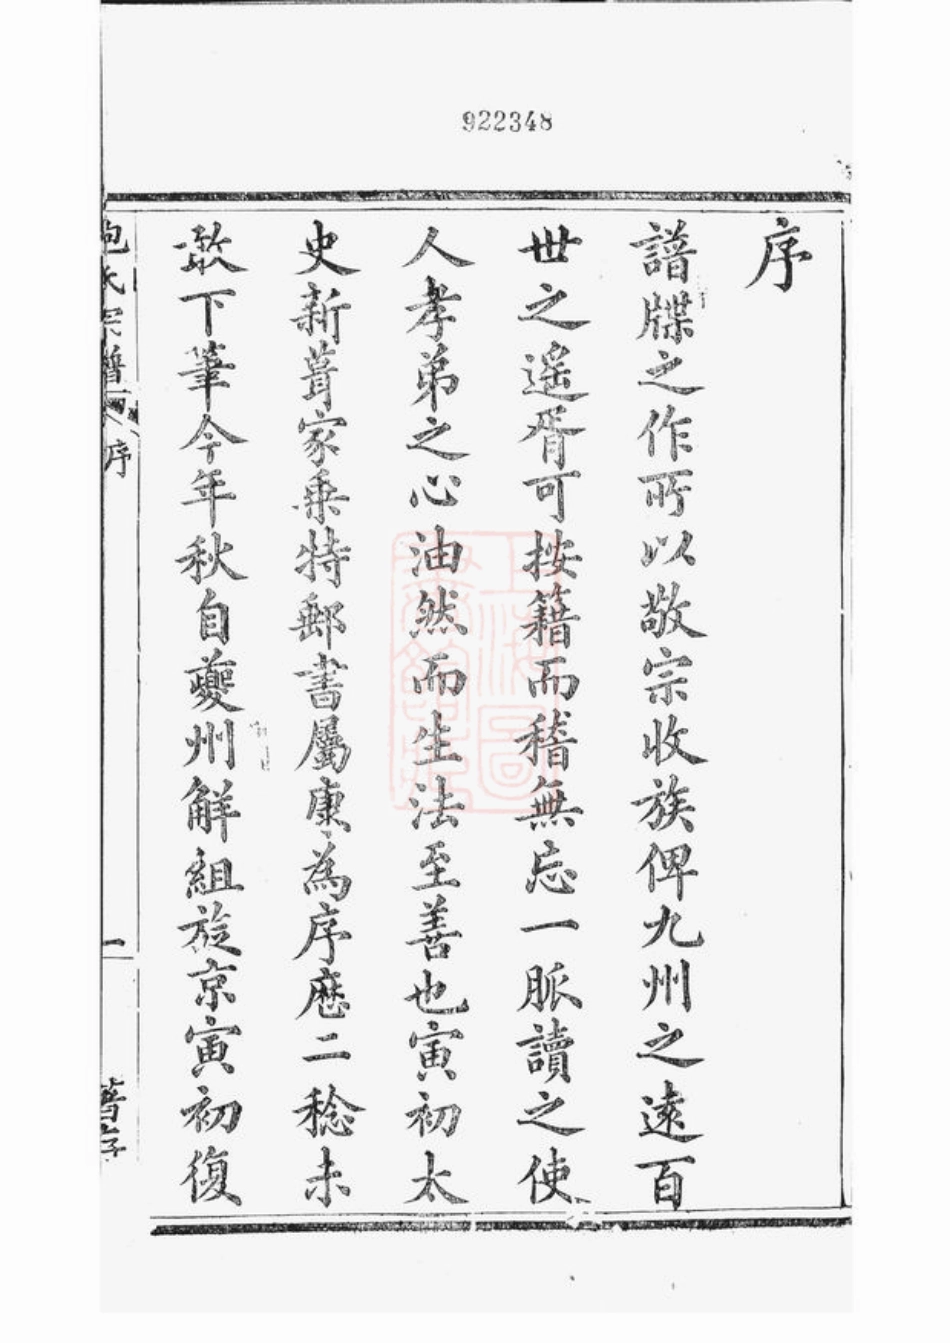 922348
序
譜牒之作所以敬宗收族俾九州之遠百
世之遙胥可按籍而稽無忘一脈讀之使
人孝弟之心油然而生法至善也寅初太
史新葺家乘特郵書屬康為序歷二稔未
敢下筆今年秋自夔州解組旋京寅初復
包氏宗譜
序
一
上海圖
書館藏